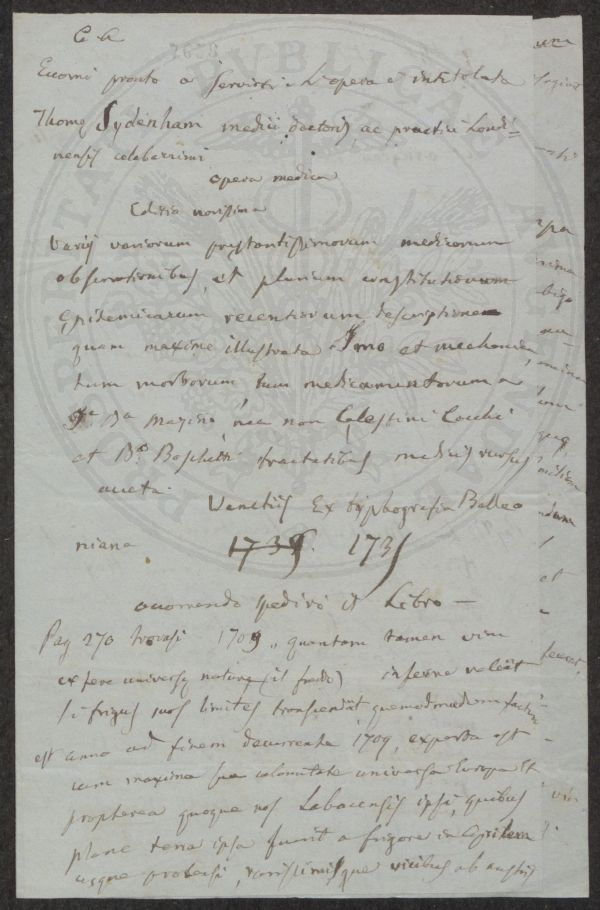 C A
Eccomi pronto a Servirti: L'opera è intitolata
Thome Sydenham medici doctoris, ac practici Londi-
nensis celeberrimi
opera medica
Editio novissima
Variis variorum prestantissimorum medicorum
observationibus, et plurium constitutionum
Epidemicarum recentiorum descriptione
quam maxime illustrata et mechanica
tum morborum tum medicamentorum a
nec non Celestini Cocchi
et tractatibus medicis rursus
aucta.
Venetiis Ex typhografia Balleo
niana 1735. 1735
occorrendo spedirò il Libro —
Pag 270 trovasi 1709 „ quantam tamen vim
expere universe nature (il freddo) inferre valeat
si frigus suos limites transcendat quemadmodum factum
est anno ad finem decurrente 1709, experta est
cum maxima sua calamitate universa Europa Et
propterea quoque nos Labacenses ipsi, quibus
plane terra ipsa fuerit a frigore in Aprilem
usque protensi, rarissimisque vicibus ab austris